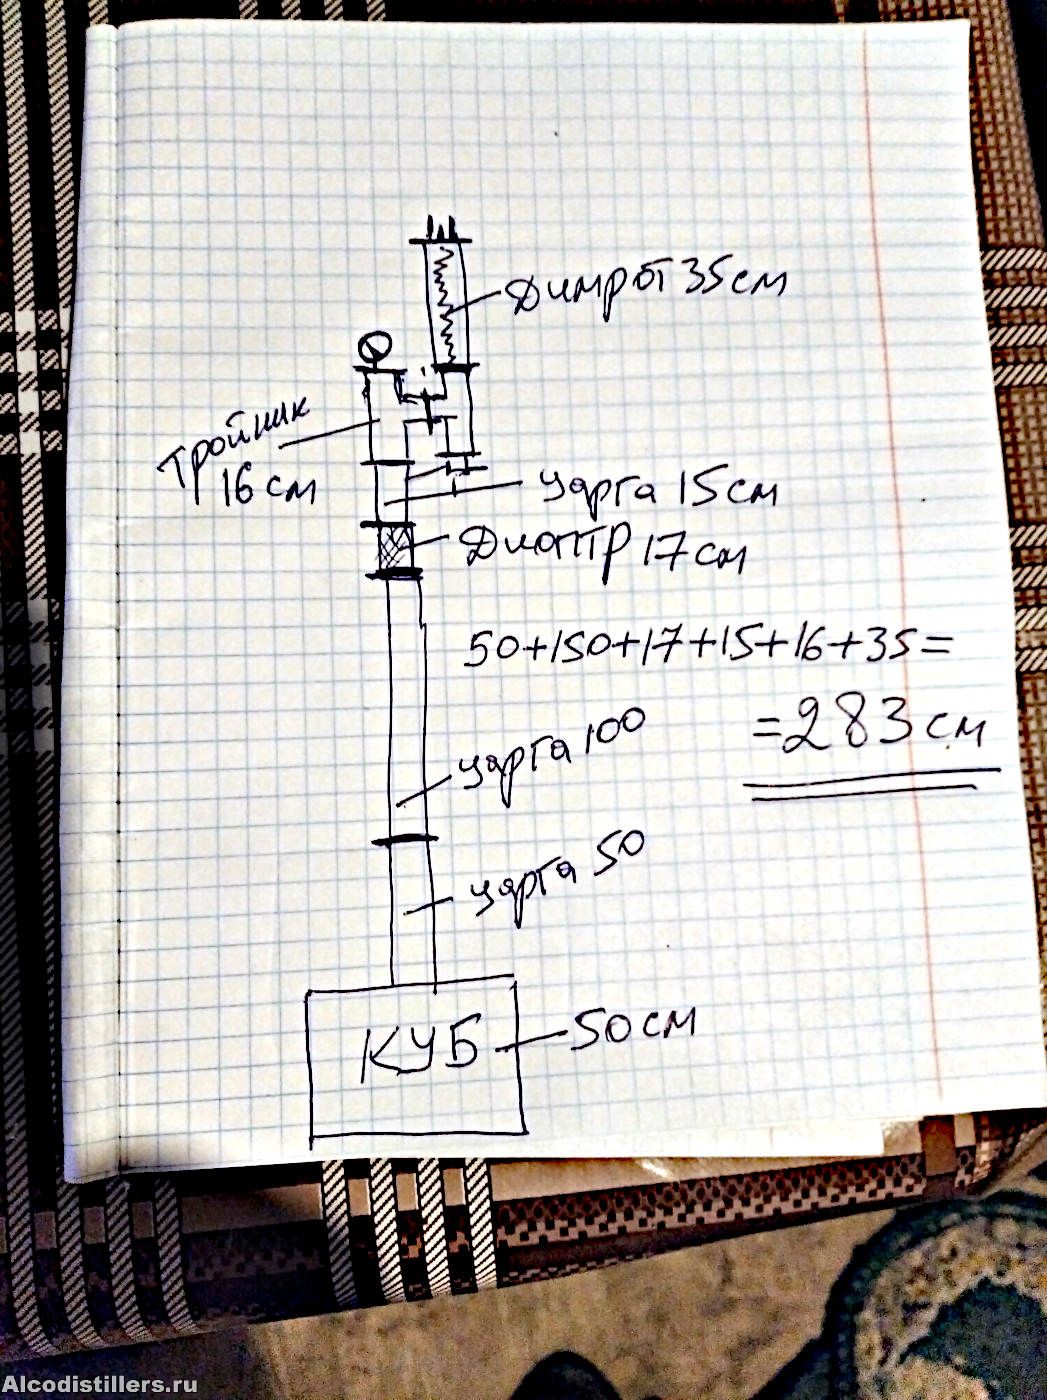 Димрот 35 см
Тройник
16 см
царга 15 см
Диоптр 17 см
50+150+17+15+16+35=
=283 см
царга 100
царга 50
КУБ
50 см
Alcodistillers.ru